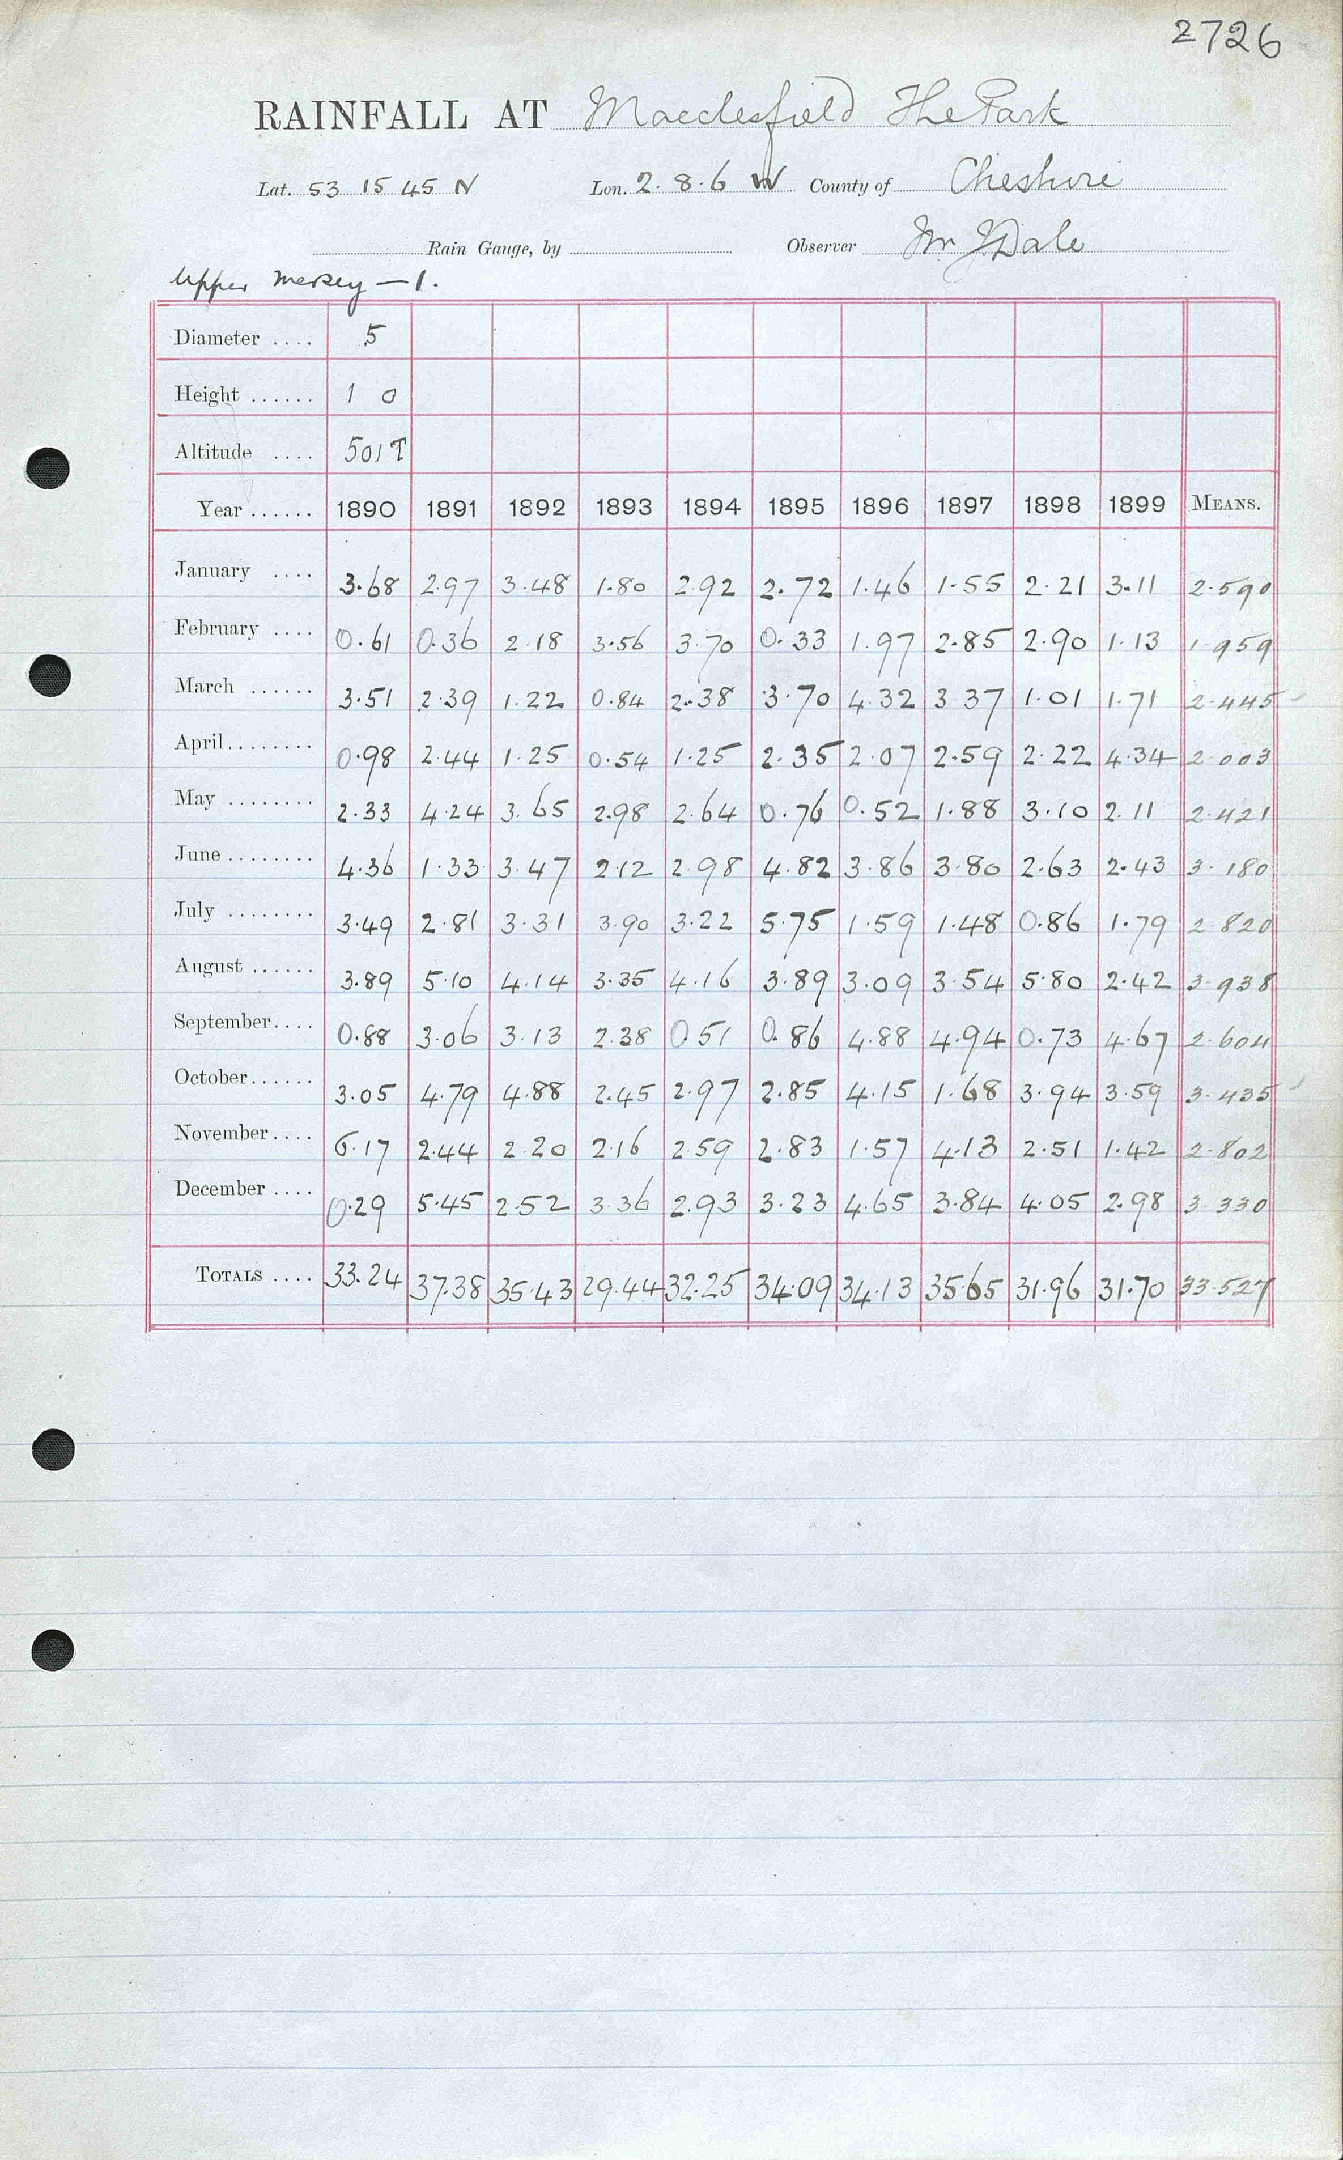 2726
RAINFALL AT Macclesfield The Park
Lat. 53 15 45 N Lon. 2. 8. 6 W County of Cheshire
Rain Gauge, by Observer Mr J Dale
Upper Mersey — 1.
Diameter .... 5
Height ...... 1 0
Altitude .... 501 T
Year ...... 1890 1891 1892 1893 1894 1895 1896 1897 1898 1899 MEANS.
January .... 3.68 2.97 3.48 1.80 2.92 2.72 1.46 1.55 2.21 3.11 2.590
February .... 0.61 0.36 2.18 3.56 3.70 0.33 1.97 2.85 2.90 1.13 1.959
March ...... 3.51 2.39 1.22 0.84 2.38 3.70 4.32 3.37 1.01 1.71 2.445
April........ 0.98 2.44 1.25 0.54 1.25 2.35 2.07 2.59 2.22 4.34 2.003
May ........ 2.33 4.24 3.65 2.98 2.64 0.76 0.52 1.88 3.10 2.11 2.421
June ........ 4.36 1.33 3.47 2.12 2.98 4.82 3.86 3.80 2.63 2.43 3.180
July ........ 3.49 2.81 3.31 3.90 3.22 5.75 1.59 1.48 0.86 1.79 2.820
August ...... 3.89 5.10 4.14 3.35 4.16 3.89 3.09 3.54 5.80 2.42 3.938
September.... 0.88 3.06 3.13 2.38 0.51 0.86 4.88 4.94 0.73 4.67 2.604
October...... 3.05 4.79 4.88 2.45 2.97 2.85 4.15 1.68 3.94 3.59 3.435
November.... 6.17 2.44 2.20 2.16 2.59 2.83 1.57 4.13 2.51 1.42 2.802
December .... 0.29 5.45 2.52 3.36 2.93 3.23 4.65 3.84 4.05 2.98 3.330
TOTALS .... 33.24 37.38 35.43 29.44 32.25 34.09 34.13 35.65 31.96 31.70 33.527